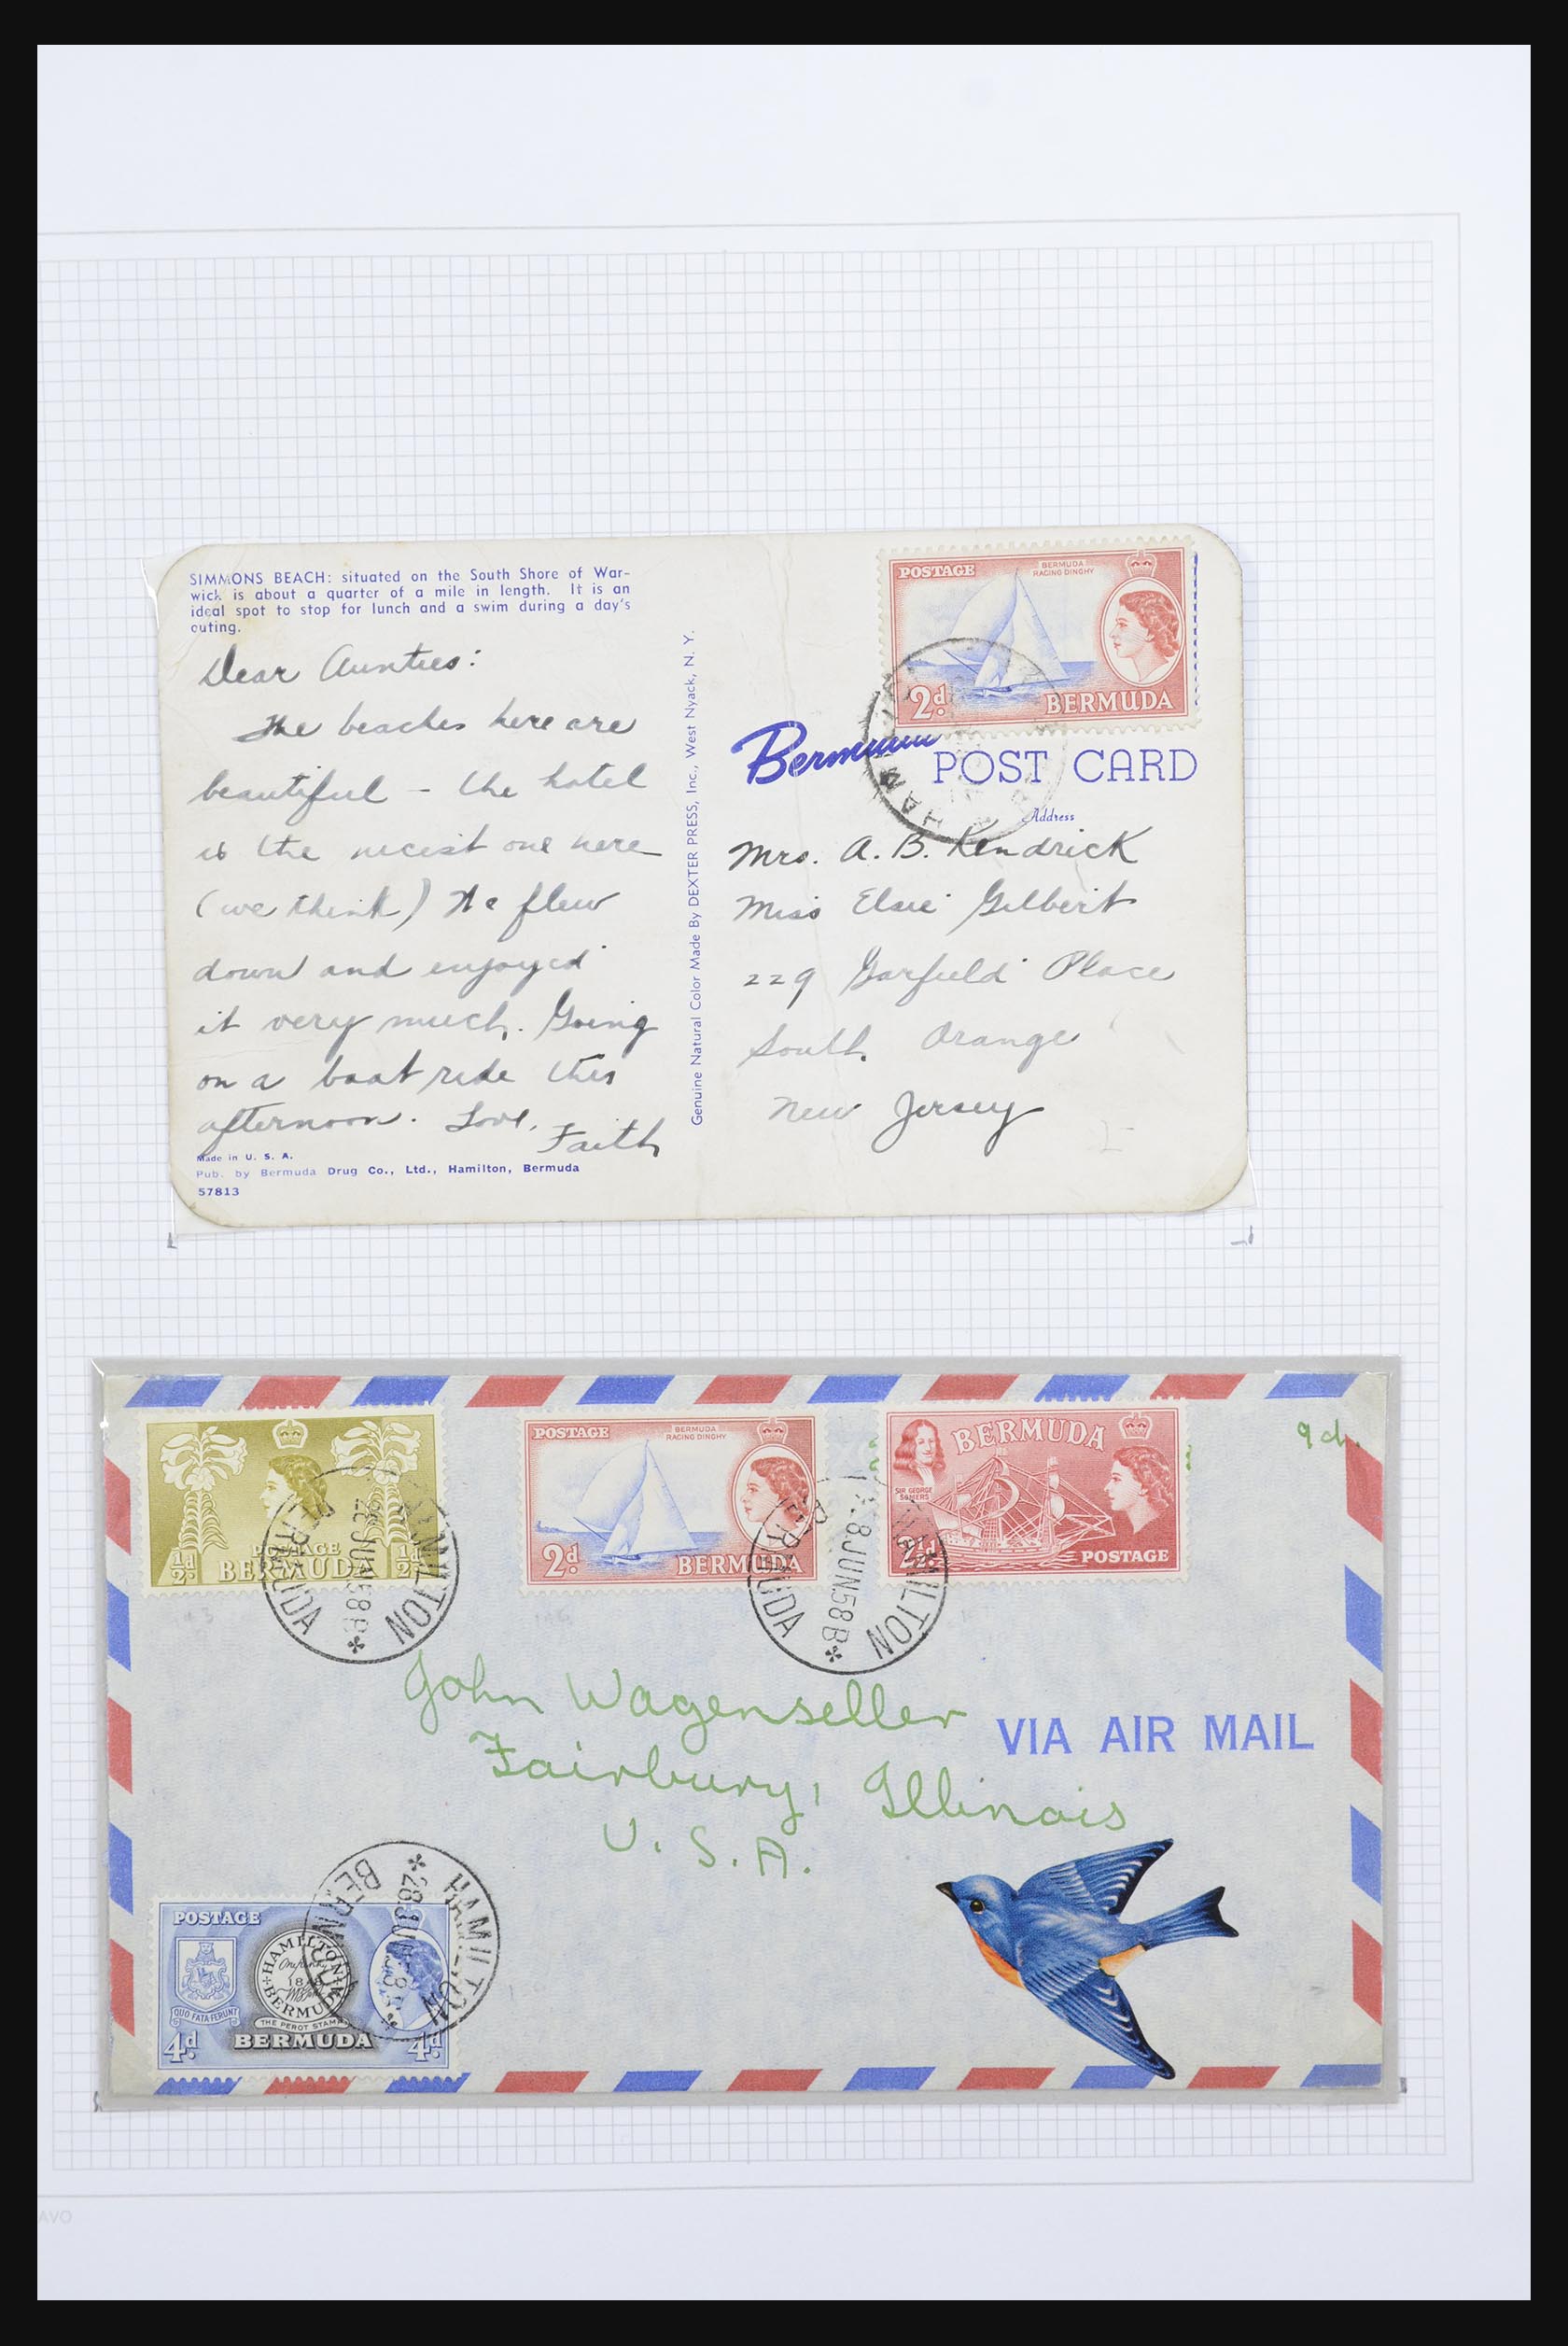 SIMMONS BEACH: situated on the South Shore of War-
wick is about a quarter of a mile in length. It is an
ideal spot to stop for lunch and a swim during a day's
outing.
Dear Aunties:
The beaches here are
beautiful - the hotel
is the nicest one here
(we think) We flew
down and enjoyed
it very much. Going
on a boat ride this
afternoon. Love,
Faith
Made in U. S. A.
Pub. by Bermuda Drug Co., Ltd., Hamilton, Bermuda
57813
Genuine Natural Color Made By DEXTER PRESS, Inc., West Nyack, N. Y.
POSTAGE
BERMUDA
RACING DINGHY
2d
BERMUDA
HAM
Bermuda
POST CARD
Address
Mrs. A. B. Kendrick
Miss Elsie Gilbert
229 Garfield Place
South Orange
New Jersey
9d.
POSTAGE
BERMUDA
½d
½d
HAMILTON
BERMUDA
JUN58B
POSTAGE
BERMUDA
RACING DINGHY
2d
BERMUDA
HAMILTON
BERMUDA
8JUN58B
BERMUDA
SIR GEORGE
SOMERS
2½d
POSTAGE
John Wagenseller
Fairbury, Illinois
U. S. A.
VIA AIR MAIL
POSTAGE
HAMILTON
One Penny
BERMUDA
QUO FATA FERUNT
THE PEROT STAMP
BERMUDA
4d
4d
HAMILTON
BERMUDA
28JUN58B